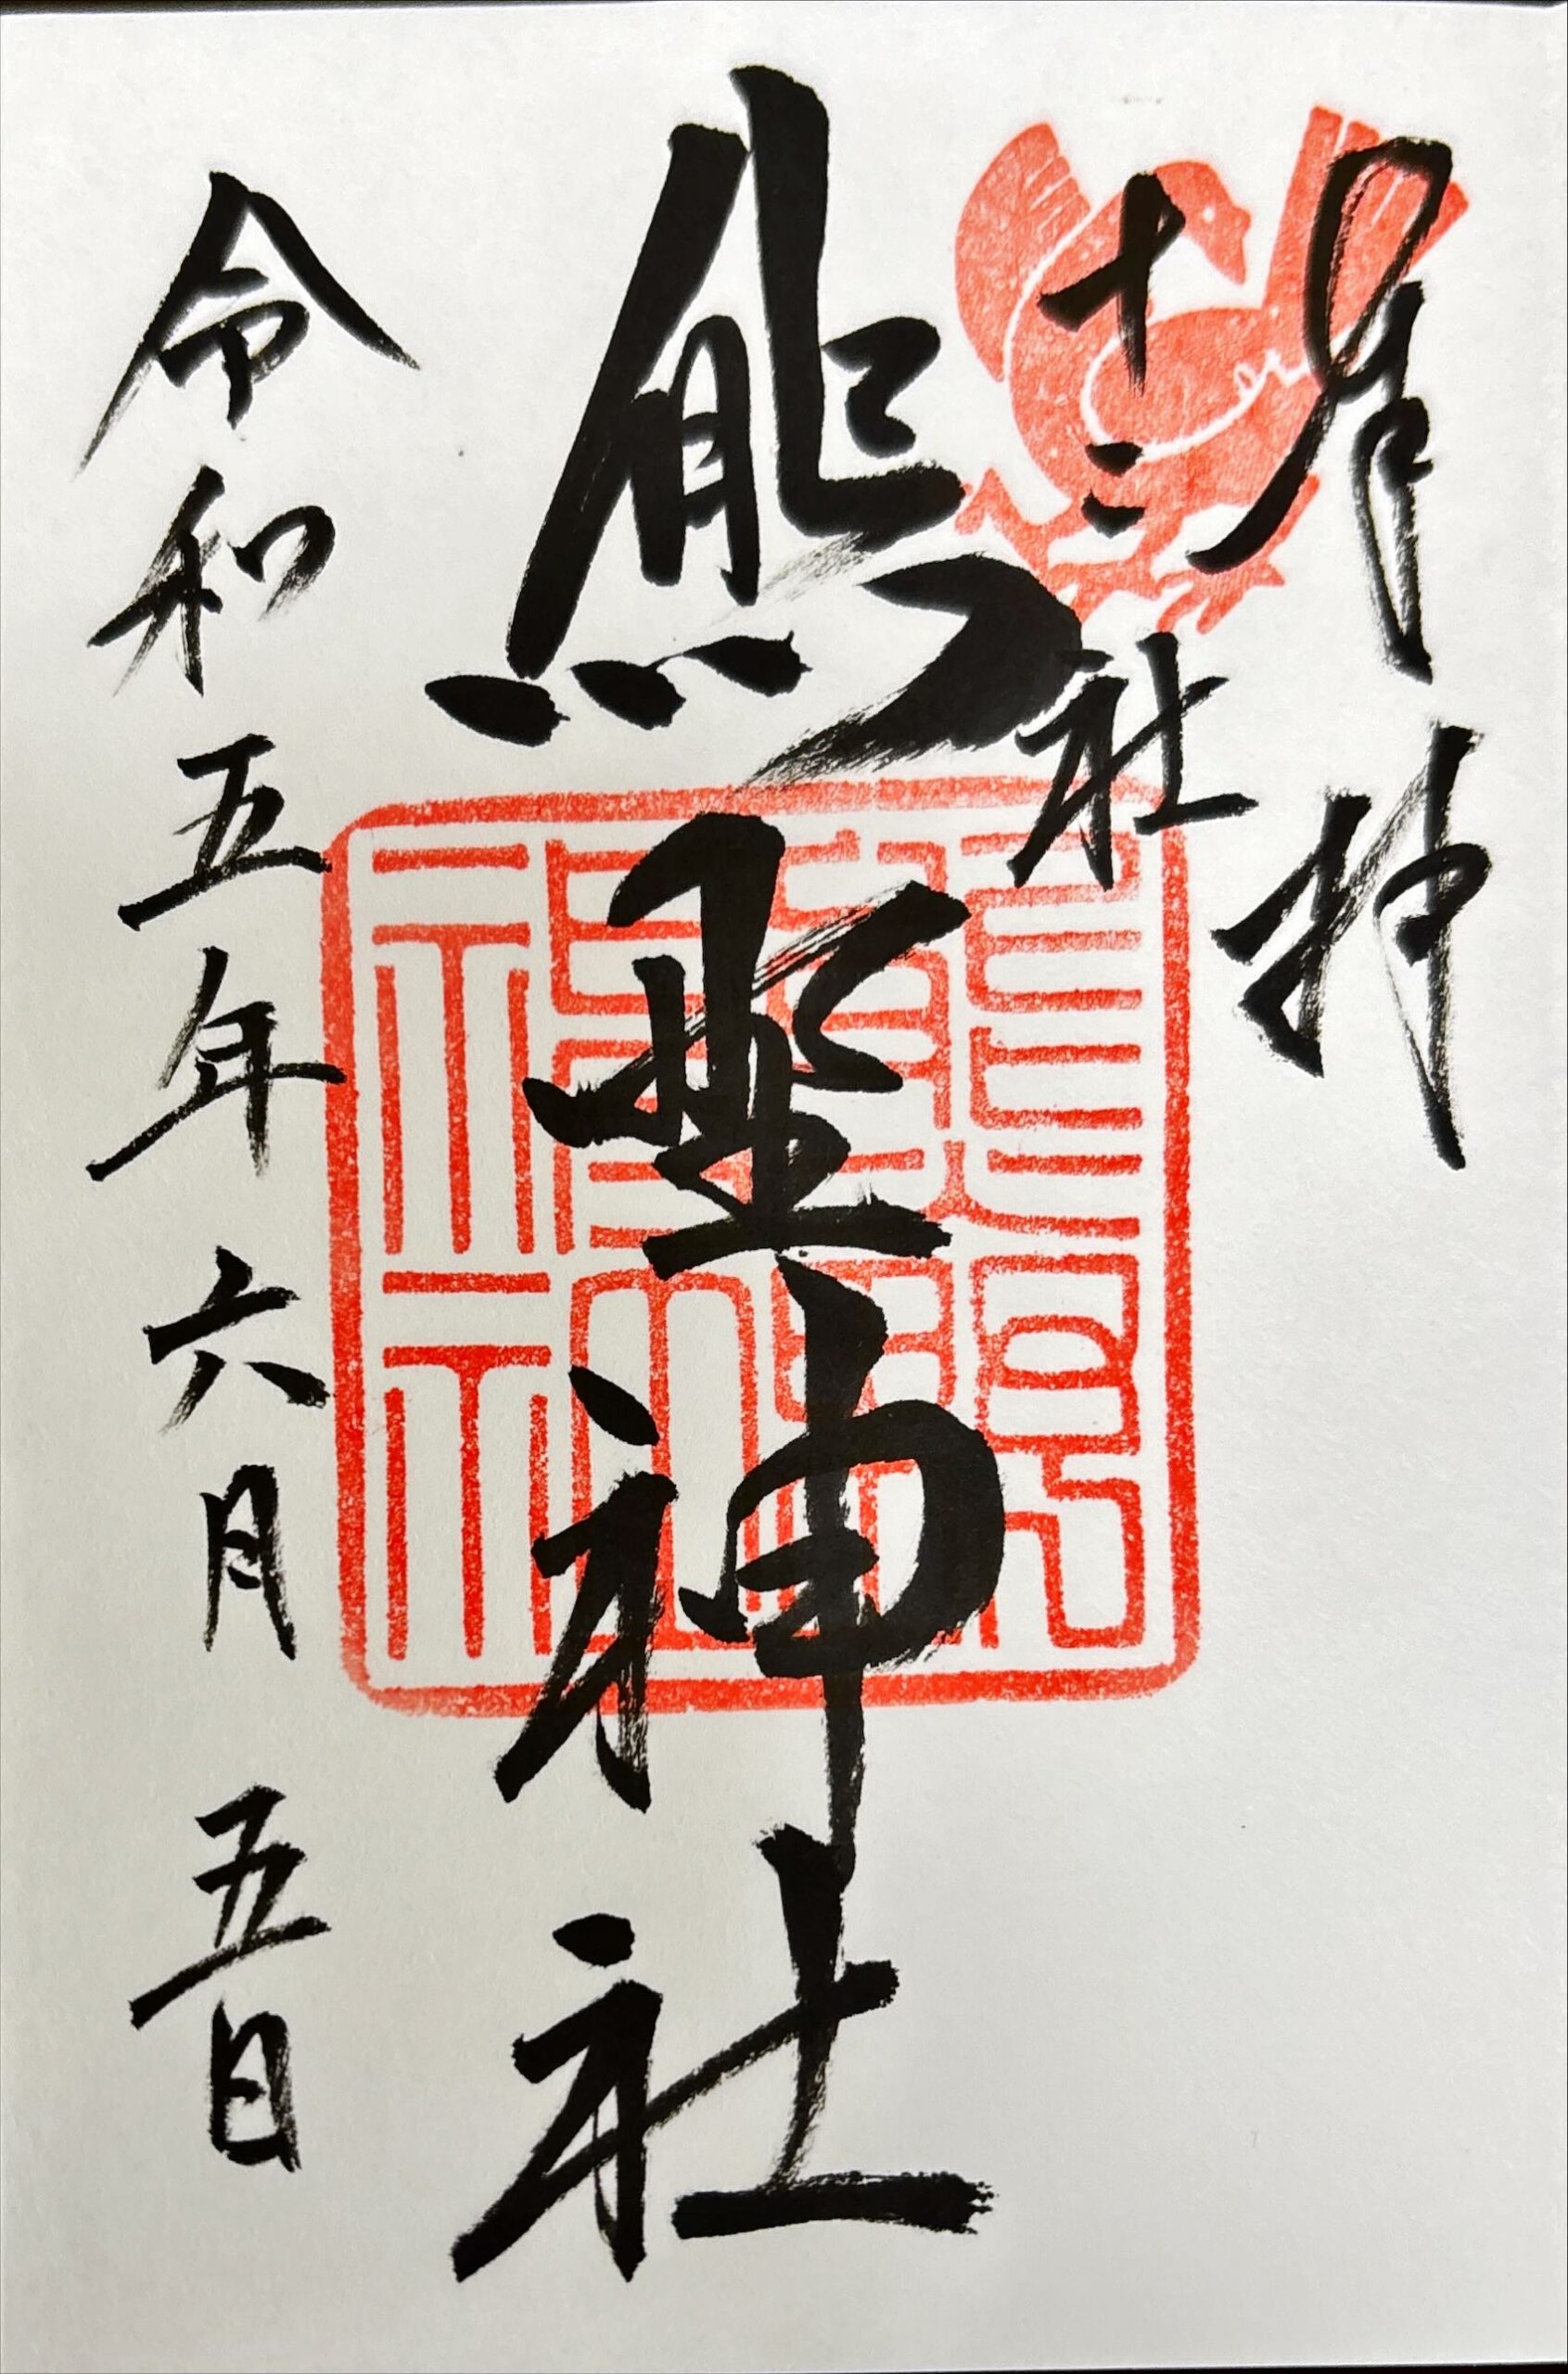 奉拝
十二社
熊野神社
令和五年六月五日